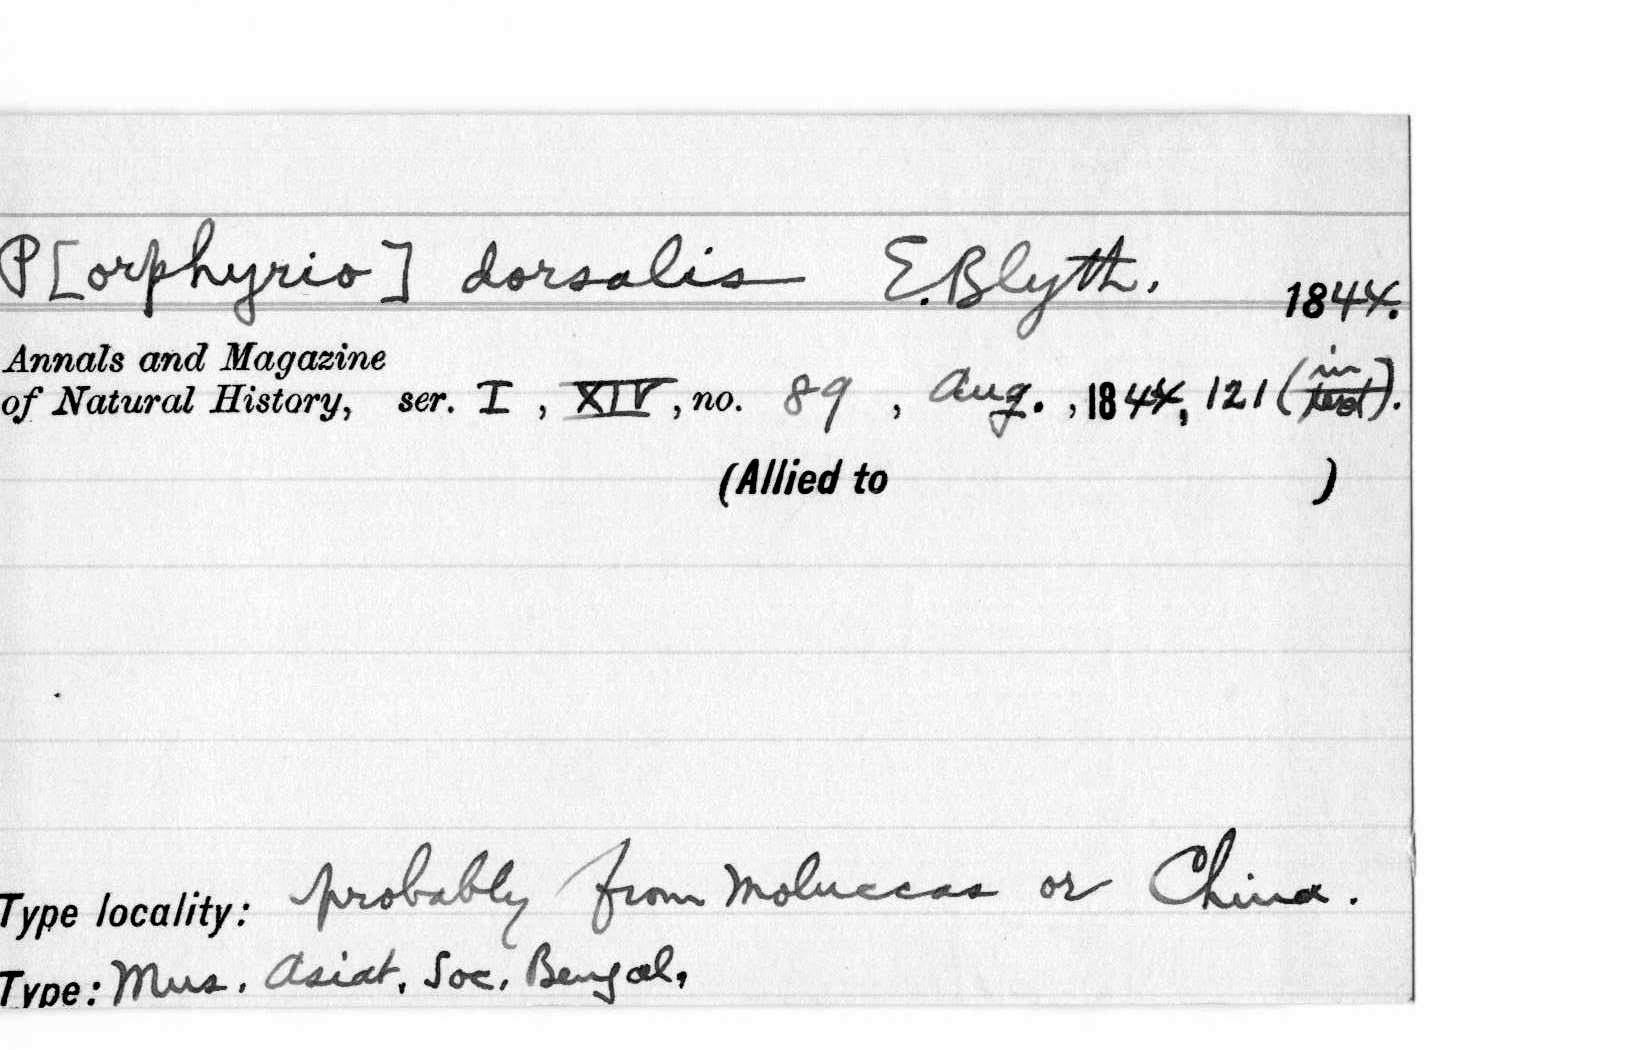 P[orphyrio] dorsalis E. Blyth. 1844.
Annals and Magazine
of Natural History, ser. I, XIV, no. 89, Aug., 1844, 121 (in text).
(Allied to )
Type locality: probably from Moluccas or China.
Type: Mus. Asiat. Soc. Bengal.